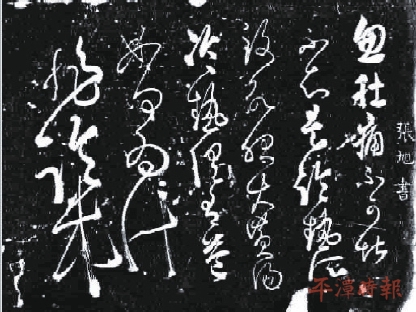 張旭書
忽肚痛不可堪
不知是冷熱所
致欲服大黃湯
冷熱俱有益
如何為計
非臨床
平潭時報